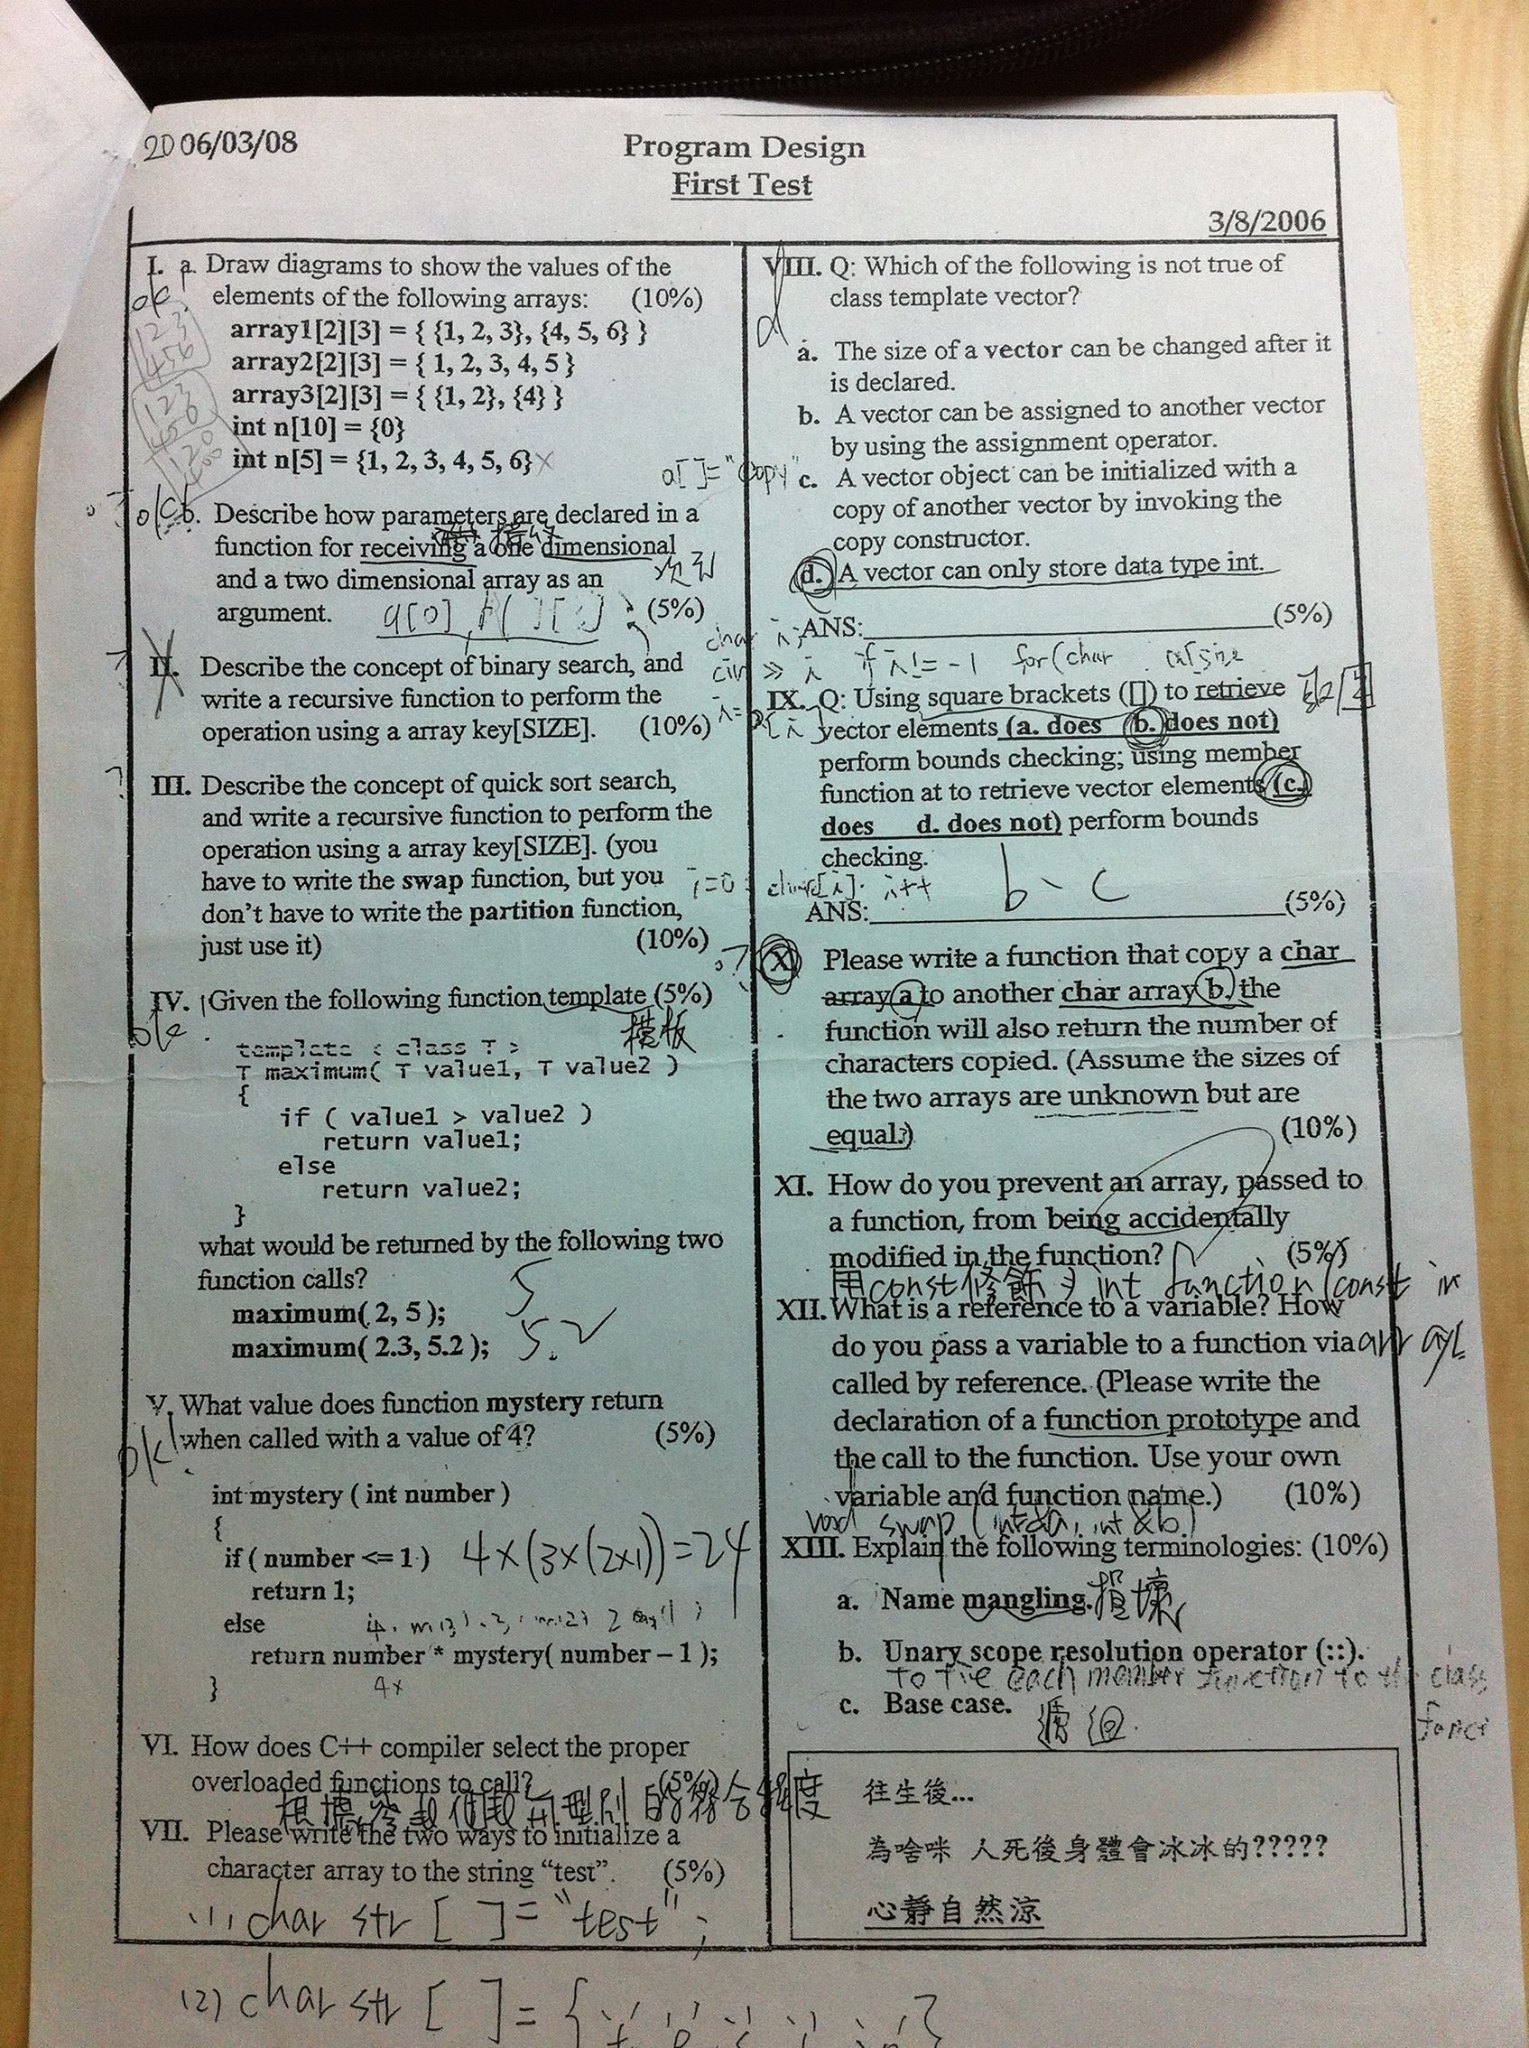 2006/03/08
Program Design
First Test
3/8/2006
I. a. Draw diagrams to show the values of the
elements of the following arrays: (10%)
ok!
array1[2][3] = { {1, 2, 3}, {4, 5, 6} }
array2[2][3] = { 1, 2, 3, 4, 5 }
array3[2][3] = { {1, 2}, {4} }
int n[10] = {0}
int n[5] = {1, 2, 3, 4, 5, 6} X
1 2 3
4 5 6
1 2 3
4 5 0
1 2 0
4 0 0
a[]="copy"
ok b. Describe how parameters are declared in a
function for receiving a one dimensional
and a two dimensional array as an
argument. (5%)
II. Describe the concept of binary search, and
write a recursive function to perform the
operation using a array key[SIZE]. (10%)
? III. Describe the concept of quick sort search,
and write a recursive function to perform the
operation using a array key[SIZE]. (you
have to write the swap function, but you
don't have to write the partition function,
just use it) (10%)
IV. Given the following function template (5%)
ok
模板
template < class T >
T maximum( T value1, T value2 )
{
if ( value1 > value2 )
return value1;
else
return value2;
}
what would be returned by the following two
function calls?
maximum( 2, 5 ); 5
maximum( 2.3, 5.2 ); 5.2
V. What value does function mystery return
when called with a value of 4? (5%)
ok!
int mystery ( int number )
{
if ( number <= 1 ) 4×(3×(2×1))=24
return 1;
else
return number * mystery( number – 1 );
} 4×
VI. How does C++ compiler select the proper
overloaded functions to call? (5%)
VII. Please write the two ways to initialize a
character array to the string "test". (5%)
(1) char str [ ] = "test";
(2) char str [ ] = {
VIII. Q: Which of the following is not true of
class template vector?
d
a. The size of a vector can be changed after it
is declared.
b. A vector can be assigned to another vector
by using the assignment operator.
c. A vector object can be initialized with a
copy of another vector by invoking the
copy constructor.
d. A vector can only store data type int.
ANS: (5%)
cin >> i if i != -1 for(char
IX. Q: Using square brackets ([]) to retrieve
vector elements (a. does b. does not)
perform bounds checking; using member
function at to retrieve vector elements (c.
does d. does not) perform bounds
checking.
b、c
ANS: (5%)
X Please write a function that copy a char
array a to another char array b. the
function will also return the number of
characters copied. (Assume the sizes of
the two arrays are unknown but are
equal.) (10%)
XI. How do you prevent an array, passed to
a function, from being accidentally
modified in the function? (5%)
用const修飾 int function (const in
XII. What is a reference to a variable? How
do you pass a variable to a function via
called by reference. (Please write the
declaration of a function prototype and
the call to the function. Use your own
variable and function name.) (10%)
void swap (int &a, int &b)
XIII. Explain the following terminologies: (10%)
a. Name mangling. 損壞
b. Unary scope resolution operator (::).
to tie each member function to the class
c. Base case.
往生後...
為啥咪 人死後身體會冰冰的?????
心靜自然涼